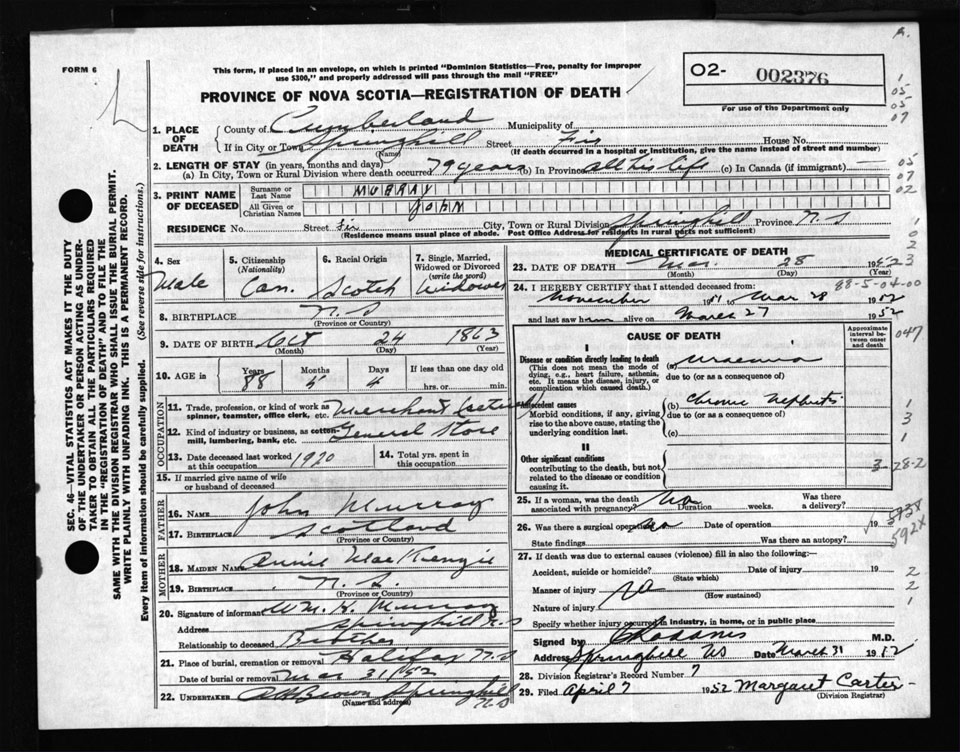 FORM 6
This form, if placed in an envelope, on which is printed "Dominion Statistics—Free, penalty for improper
use $300," and properly addressed will pass through the mail "FREE"
PROVINCE OF NOVA SCOTIA—REGISTRATION OF DEATH
02- 002376
For use of the Department only
SEC. 46—VITAL STATISTICS ACT MAKES IT THE DUTY
OF THE UNDERTAKER OR PERSON ACTING AS UNDER-
TAKER TO OBTAIN ALL THE PARTICULARS REQUIRED
IN THE "REGISTRATION OF DEATH" AND TO FILE THE
SAME WITH THE DIVISION REGISTRAR WHO SHALL ISSUE THE BURIAL PERMIT.
WRITE PLAINLY WITH UNFADING INK. THIS IS A PERMANENT RECORD.
Every item of information should be carefully supplied. (See reverse side for instructions.)
1. PLACE OF DEATH
County of Cumberland Municipality of
If in City or Town Springhill Street Fir House No.
(Name) (If death occurred in a hospital or institution, give the name instead of street and number)
2. LENGTH OF STAY (in years, months and days)
(a) In City, Town or Rural Division where death occurred 79 years (b) In Province all his life (c) In Canada (if immigrant)
3. PRINT NAME OF DECEASED
Surname or Last Name MURRAY
All Given or Christian Names JOHN
RESIDENCE No. Street Fir City, Town or Rural Division Springhill Province N.S
(Residence means usual place of abode. Post Office Address for residents in rural parts not sufficient)
4. Sex Male
5. Citizenship (Nationality) Can.
6. Racial Origin Scotch
7. Single, Married, Widowed or Divorced (write the word) Widower
8. BIRTHPLACE N.S
(Province or Country)
9. DATE OF BIRTH Oct 24 1863
(Month) (Day) (Year)
10. AGE in Years 88 Months 5 Days 4 If less than one day old hrs. or min.
OCCUPATION
11. Trade, profession, or kind of work as spinner, teamster, office clerk, etc. Merchant (retired)
12. Kind of industry or business, as cotton-mill, lumbering, bank, etc. General Store
13. Date deceased last worked at this occupation 1920
14. Total yrs. spent in this occupation
15. If married give name of wife or husband of deceased
FATHER
16. NAME John Murray
17. BIRTHPLACE Scotland
(Province or Country)
MOTHER
18. MAIDEN NAME Annie MacKenzie
19. BIRTHPLACE N.S.
(Province or Country)
20. Signature of informant Wm. H. Murray
Address Springhill N.S
Relationship to deceased Brother
21. Place of burial, cremation or removal Halifax N.S
Date of burial or removal Mar 31/52
22. UNDERTAKER Brown Springhill N.S
(Name and Address)
MEDICAL CERTIFICATE OF DEATH
23. DATE OF DEATH Mar. 28 1952
(Month) (Day) (Year)
88-5-04-00
24. I HEREBY CERTIFY that I attended deceased from:
November 1951 to Mar 28 1952
and last saw him alive on March 27 1952
CAUSE OF DEATH
Approximate interval between onset and death
I
Disease or condition directly leading to death (a) Uraemia
(This does not mean the mode of dying, e.g., heart failure, asthenia, etc. It means the disease, injury, or complication which caused death.)
due to (or as a consequence of)
Antecedent causes (b) Chronic Nephritis
Morbid conditions, if any, giving rise to the above cause, stating the underlying condition last.
due to (or as a consequence of)
(c)
II
Other significant conditions
contributing to the death, but not related to the disease or condition causing it.
25. If a woman, was the death associated with pregnancy? No Duration weeks. Was there a delivery?
26. Was there a surgical operation? No Date of operation 19
State findings Was there an autopsy?
27. If death was due to external causes (violence) fill in also the following:—
Accident, suicide or homicide? Date of injury 19
(State which)
Manner of injury no
(How sustained)
Nature of injury
Specify whether injury occurred in industry, in home, or in public place
Signed by M.D.
Address Springhill NS Date March 31 1952
28. Division Registrar's Record Number 7
29. Filed April 7 1952 Margaret Carter
(Division Registrar)
1
05
05
07
05
07
02
047
1
3
1
3-28-2
593X
592X
2
2
1